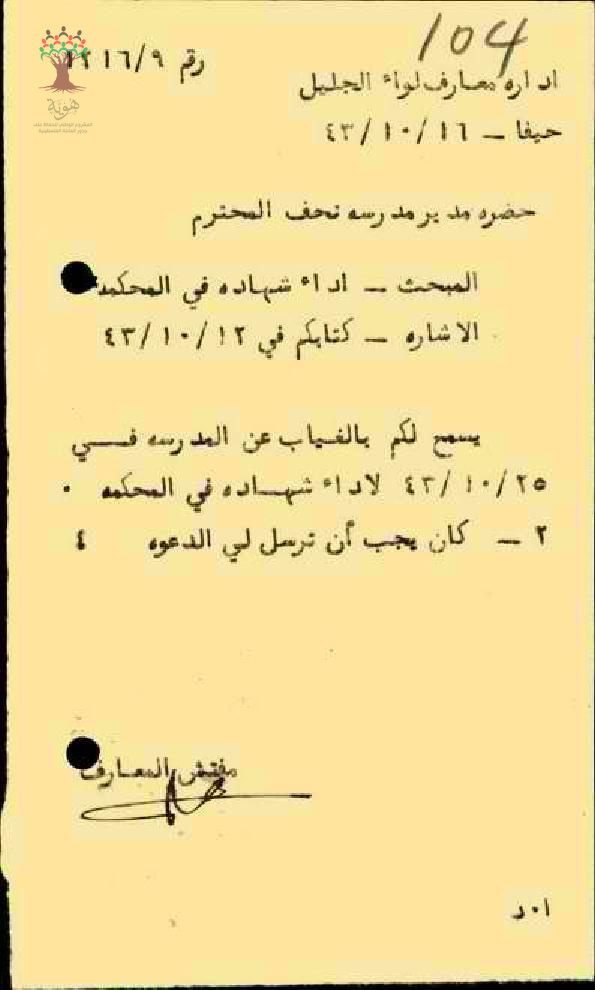 104
رقم ١٢١٦/٩
اداره معارف لواء الجليل
حيفا ــ ٤٣/١٠/١٦
حضره مدير مدرسه نحف المحترم
المبحث ــ اداء شهاده في المحكمه
الاشاره ــ كتابكم في ٤٣/١٠/١٢
يسمح لكم بالغياب عن المدرسه فــي
٤٣/١٠/٢٥ لاداء شهــاده في المحكمه ٠
٢ ــ كان يجب أن ترسل لي الدعوه ٤
مفتش المعارف
ا٠د
هوية